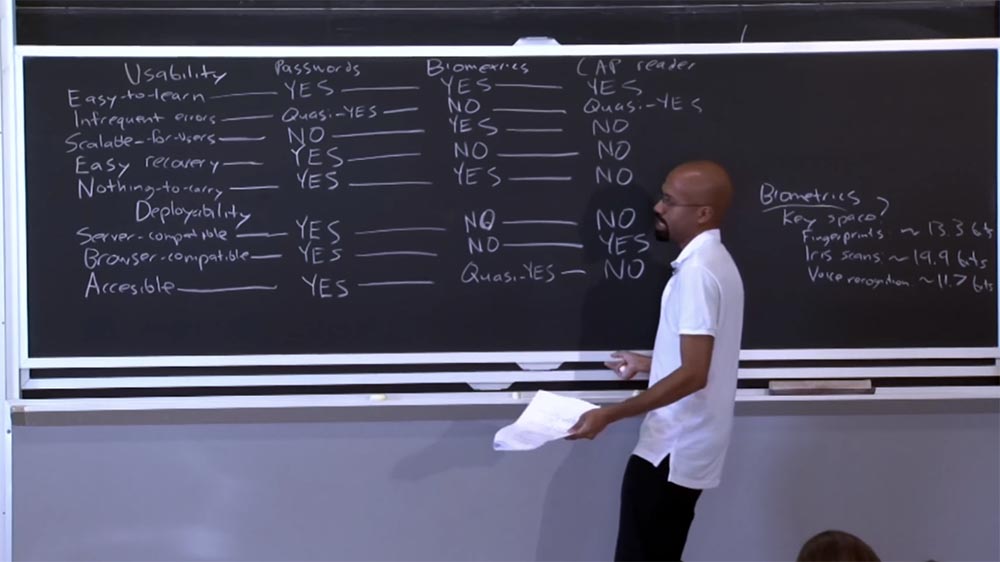 Usability Passwords Biometrics CAP reader
Easy-to-learn YES YES YES
Infrequent errors Quasi-YES NO Quasi-YES
Scalable-for-users NO YES NO
Easy recovery YES NO NO
Nothing-to-carry YES YES NO
Deployability
Server-compatible YES NO NO
Browser-compatible YES NO YES
Accesible YES Quasi-YES NO
Biometrics
Key space?
Fingerprints: ~ 13.3 bits
Iris scans ~ 19.9 bits
Voice recognition ~ 11.7 bits